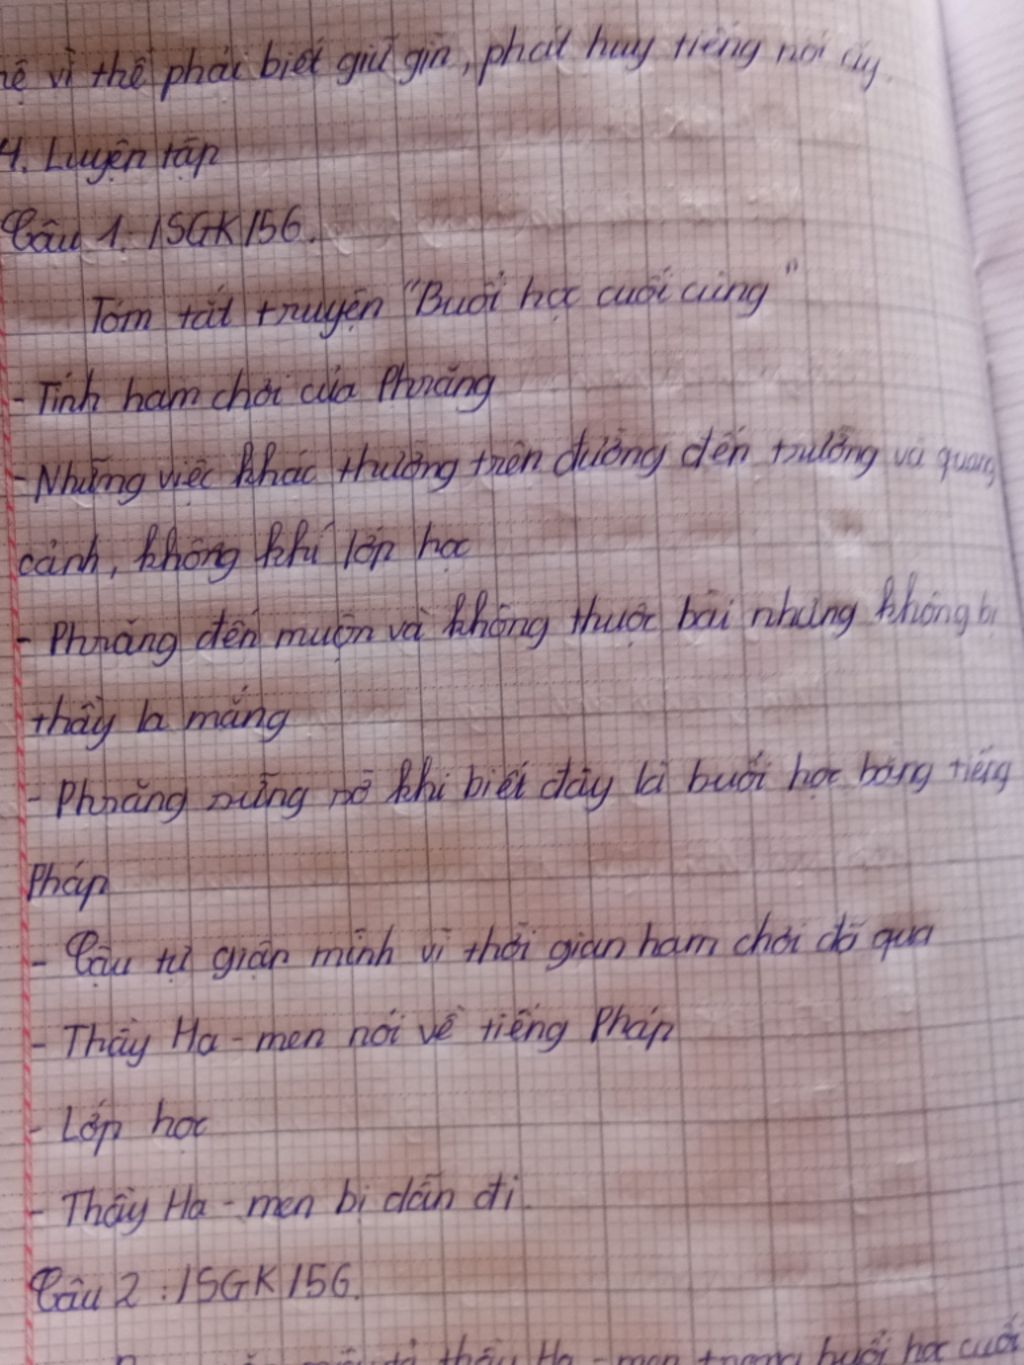 vì thế phải biết giữ gìn, phát huy tiếng nói ấy.
4. Luyện tập
Câu 1: /SGK/56.
Tóm tắt truyện "Buổi học cuối cùng"
- Tính ham chơi của Phrăng
- Những việc khác thường trên đường đến trường và quang
cảnh, không khí lớp học
- Phrăng đến muộn và không thuộc bài nhưng không bị
thầy la mắng
- Phrăng sững sờ khi biết đây là buổi học bằng tiếng
Pháp
- Cậu tự giận mình vì thời gian ham chơi đã qua
- Thầy Ha-men nói về tiếng Pháp
- Lớp học
- Thầy Ha-men bị dẫn đi.
Câu 2: /SGK/56.
tả thầy Ha-men trong buổi học cuối